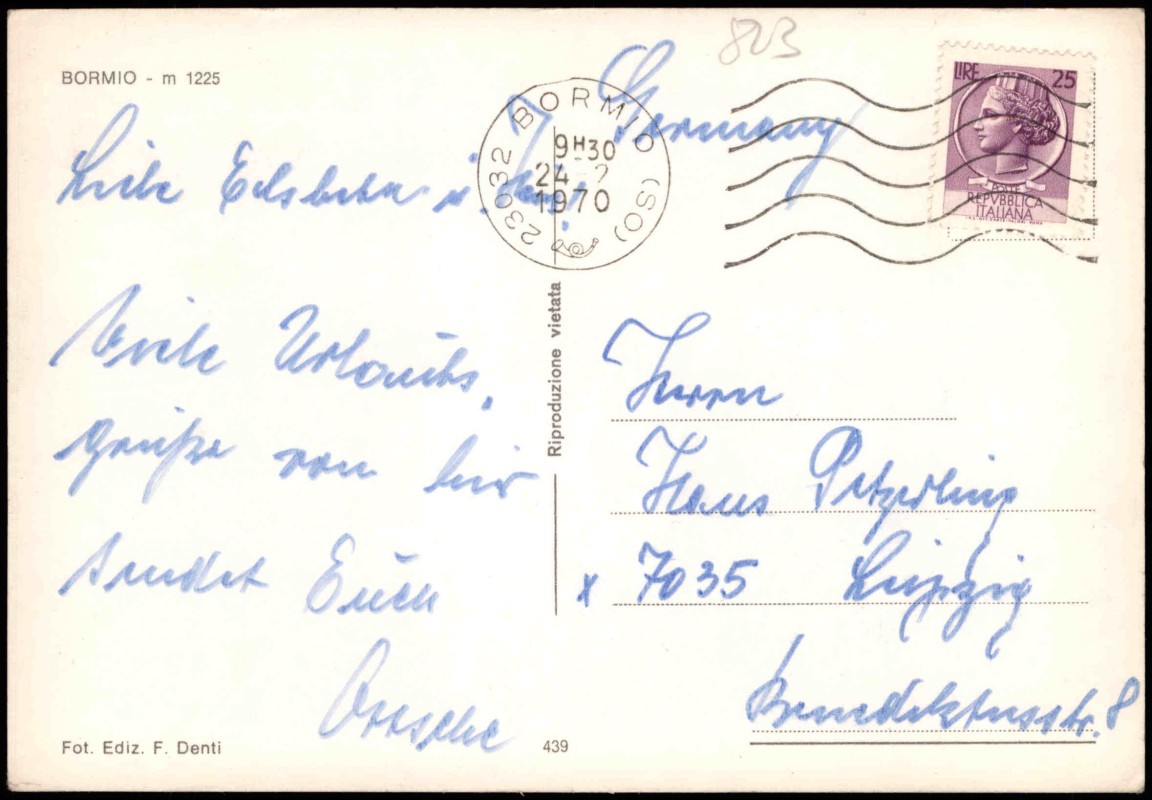 BORMIO - m 1225
Liebe Elsbeth u.
Viele Urlaubs,
grüße von hir
sendet Euch
Fot. Ediz. F. Denti
439
Riproduzione vietata
823
Germany
23032 BORMIO (SO)
9H30
24 - 2
1970
LIRE 25
POSTE
REPVBBLICA
ITALIANA
Herrn
Hans
x 7035 Leipzig
Benediktusstr. 8